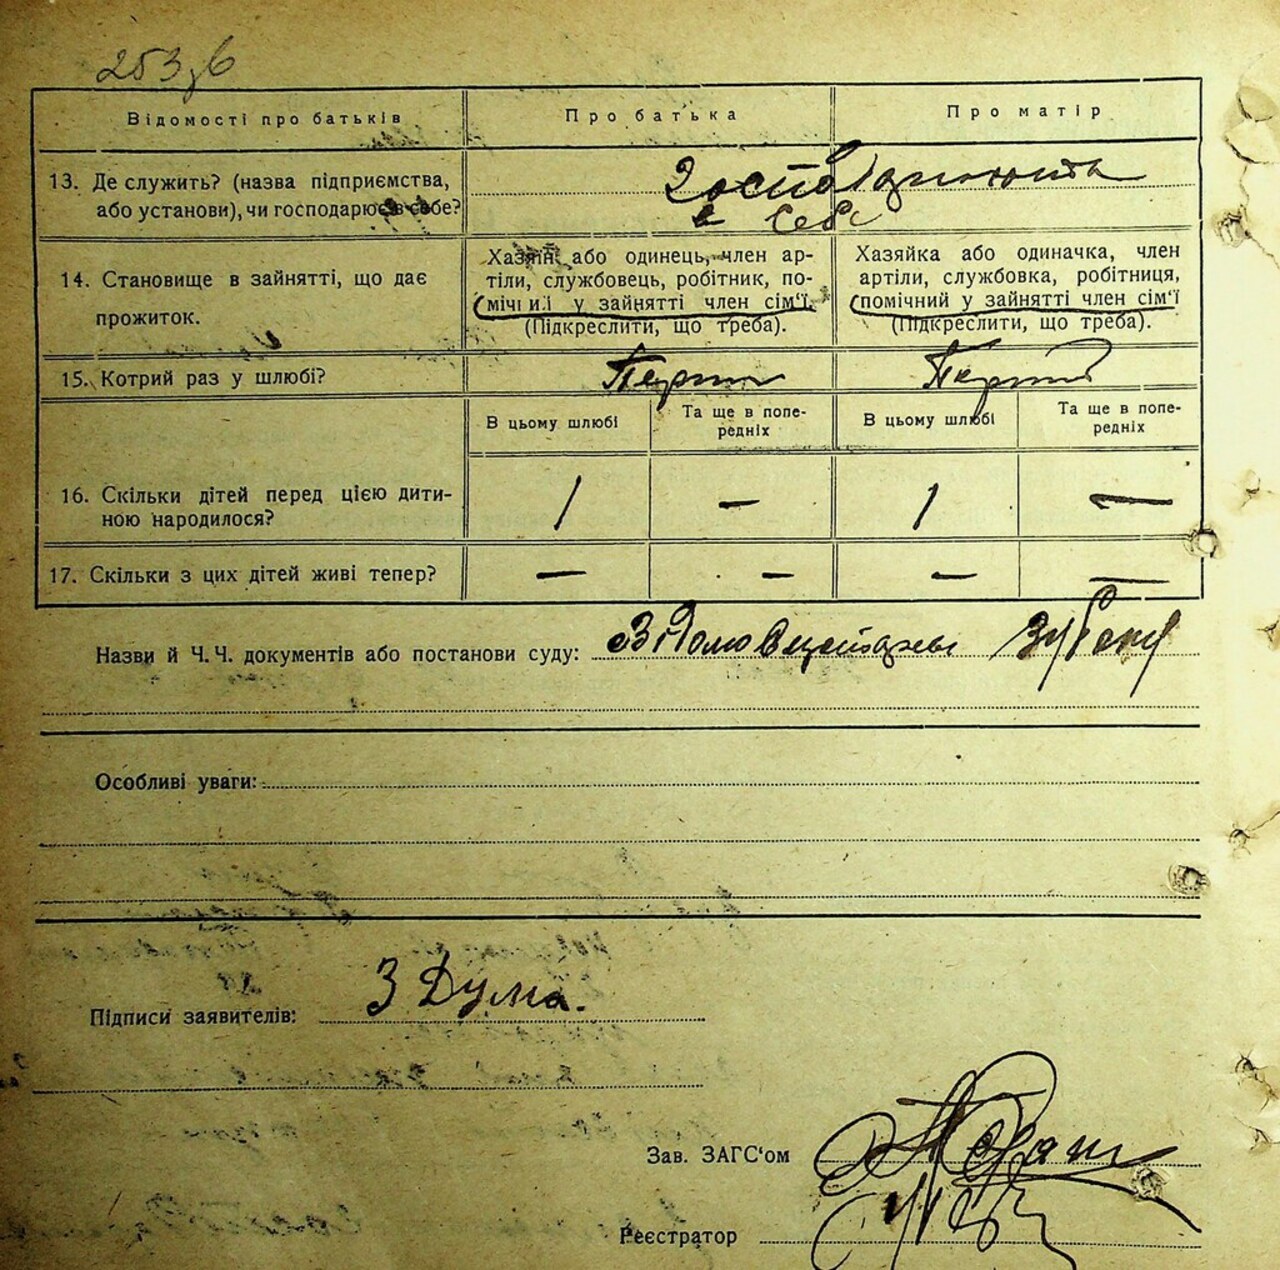 253зв
Відомості про батьків
Про батька
Про матір
13. Де служить? (назва підприємства,
або установи), чи господарює в себе?
Господарюють
в себе
14. Становище в зайнятті, що дає
прожиток.
Хазяїн або одинець, член ар-
тіли, службовець, робітник, по-
мічний у зайнятті член сім'ї.
(Підкреслити, що треба).
Хазяйка або одиначка, член
артіли, службовка, робітниця,
помічний у зайнятті член сім'ї
(Підкреслити, що треба).
15. Котрий раз у шлюбі?
Перший
Перший
В цьому шлюбі
Та ще в попе-
редніх
В цьому шлюбі
Та ще в попе-
редніх
16. Скільки дітей перед цією дити-
ною народилося?
1 — 1 —
17. Скільки з цих дітей живі тепер?
— — — —
Назви й Ч.Ч. документів або постанови суду:
Особливі уваги:
Підписи заявителів: З Дума.
Зав. ЗАГС'ом
Реєстратор